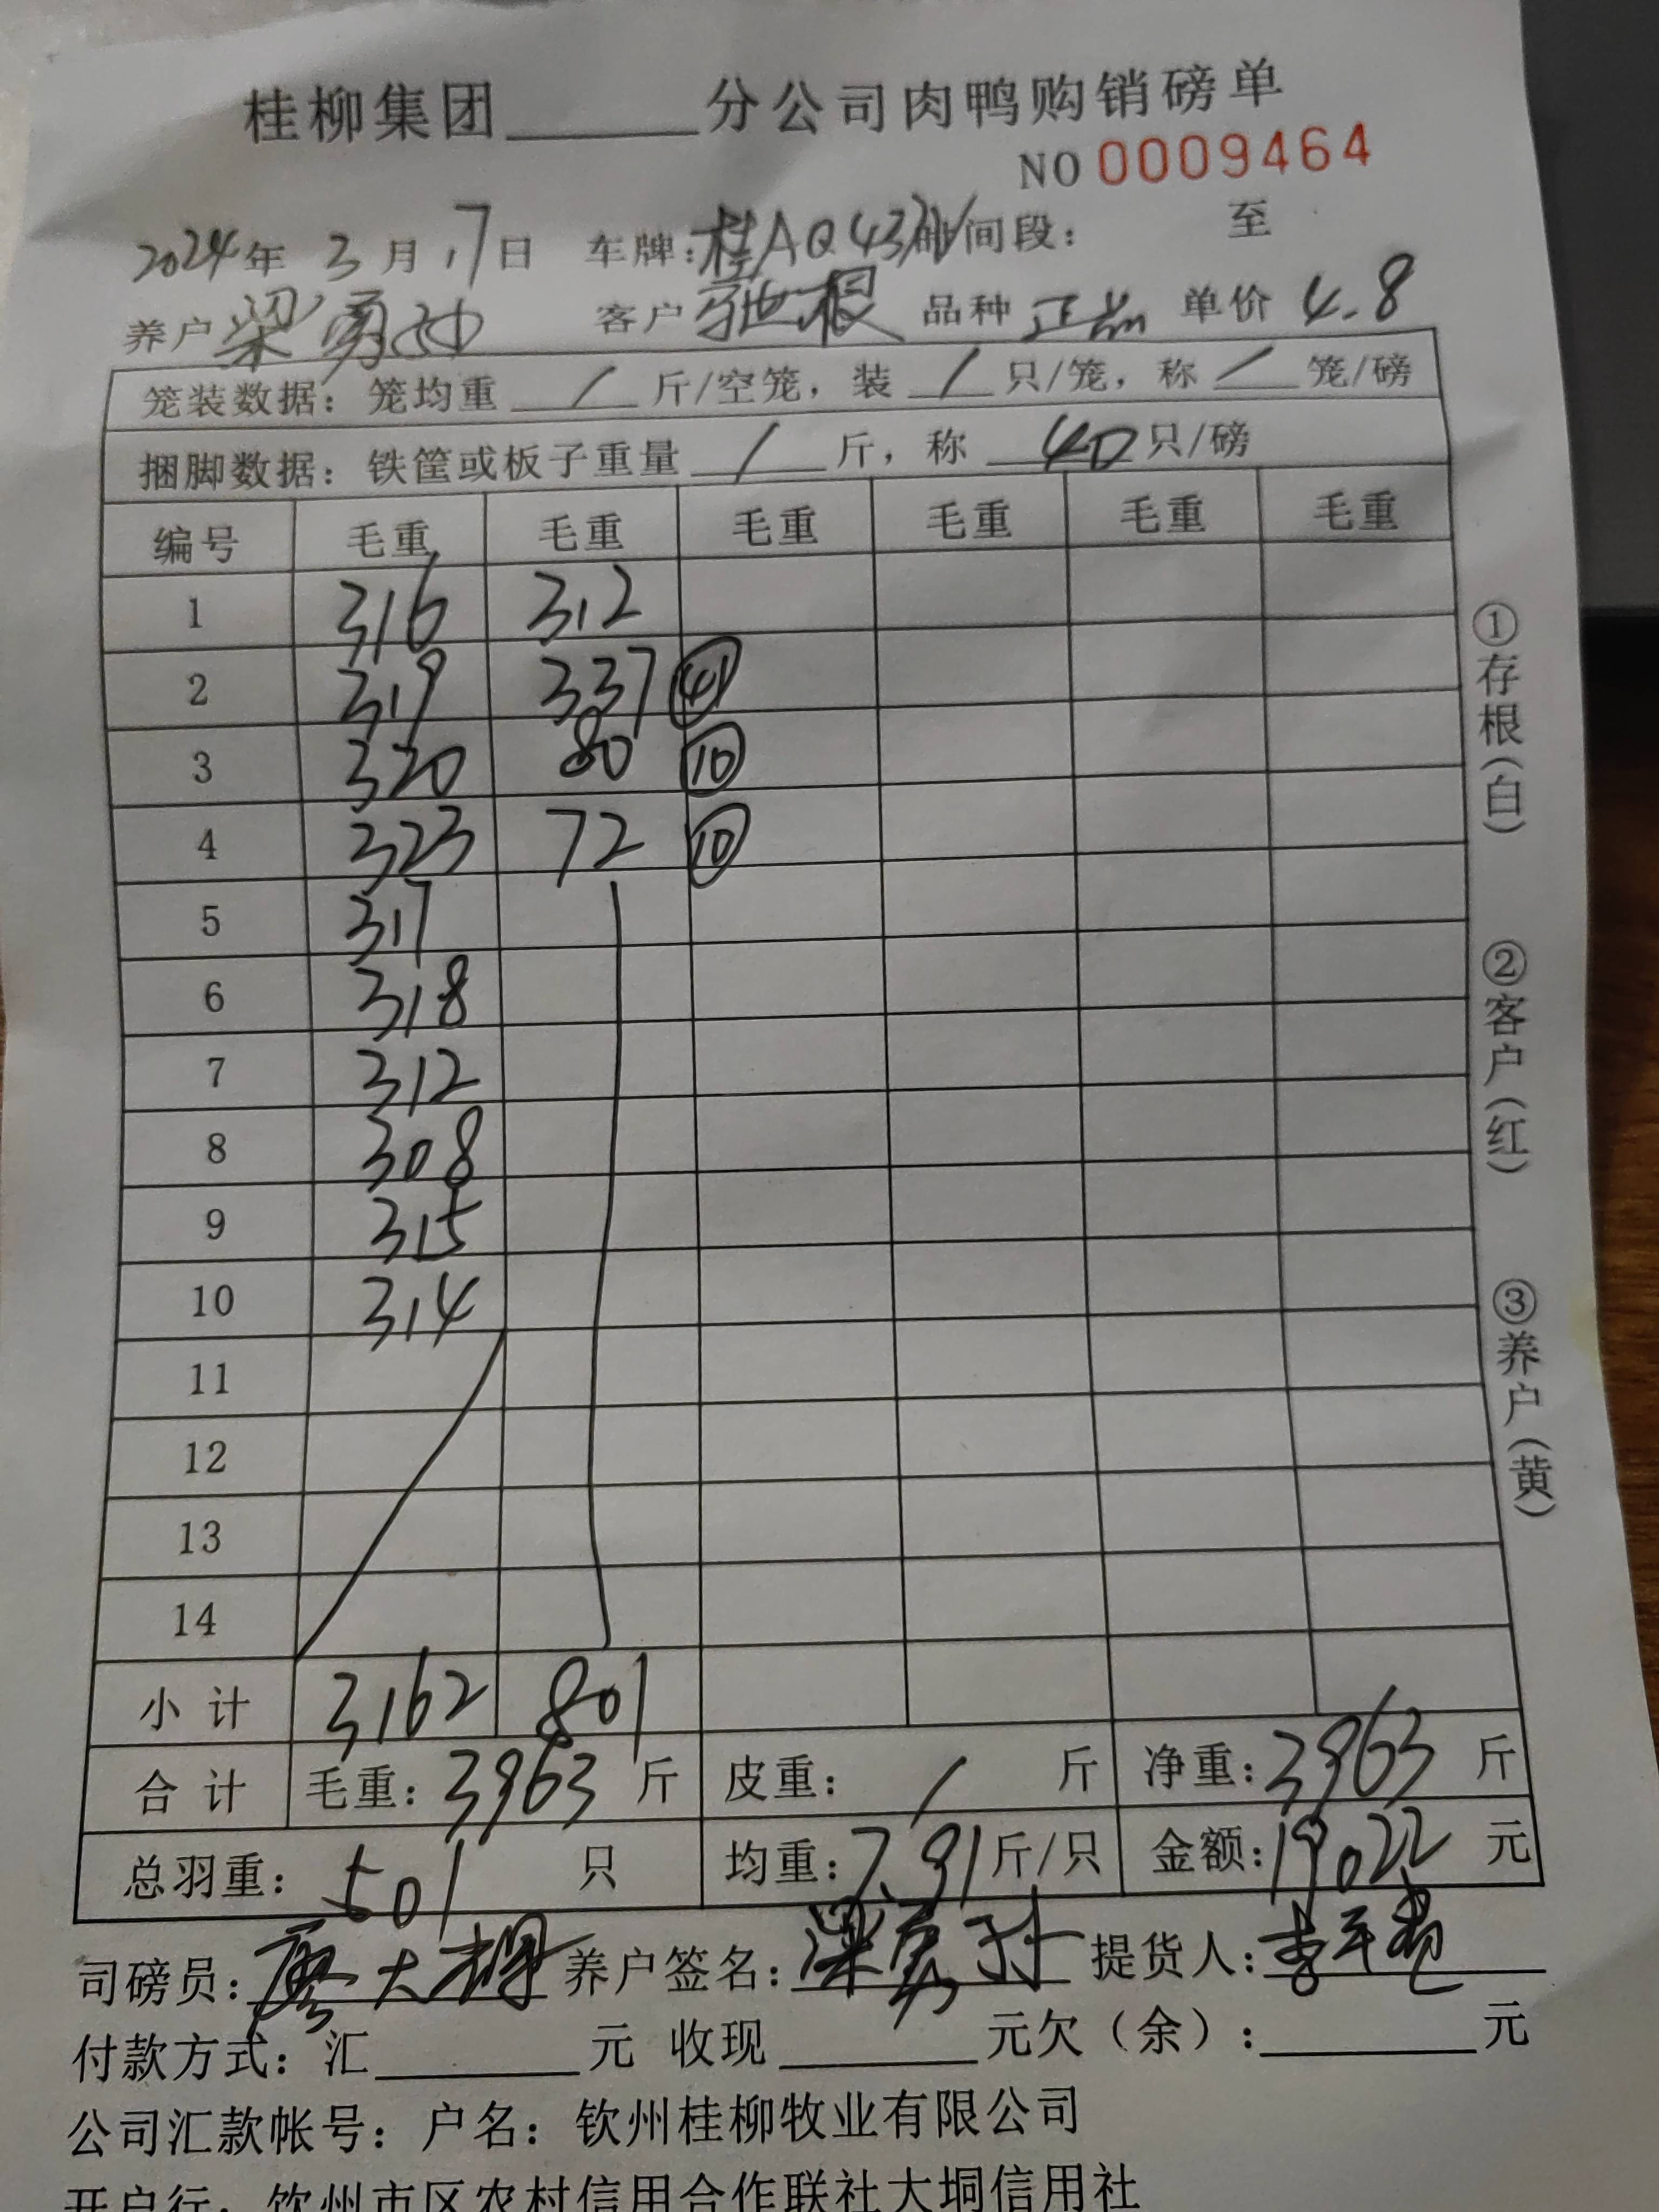 桂柳集团______分公司肉鸭购销磅单
NO 0009464
2024年 3月 17日 车牌:桂AQ43 时间段: 至
养户 梁勇 客户 驰根 品种 正品 单价 4.8
笼装数据: 笼均重 / 斤/空笼, 装 / 只/笼, 称 / 笼/磅
捆脚数据: 铁筐或板子重量 / 斤, 称 40 只/磅
编号 毛重 毛重 毛重 毛重 毛重 毛重
1 316 312
2 319 337 ㊶
3 320 80 ⑩
4 323 72 ⑩
5 317
6 318
7 312
8 308
9 315
10 314
11
12
13
14
小计 3162 801
合计 毛重: 3963 斤 皮重: / 斤 净重: 3963 斤
总羽重: 501 只 均重: 7.91 斤/只 金额: 19022 元
司磅员: 廖大 养户签名: 梁勇 提货人: 李
付款方式: 汇______元 收现______元欠(余):______元
公司汇款帐号: 户名: 钦州桂柳牧业有限公司
开户行: 钦州市区农村信用合作联社大垌信用社
①存根(白)
②客户(红)
③养户(黄)